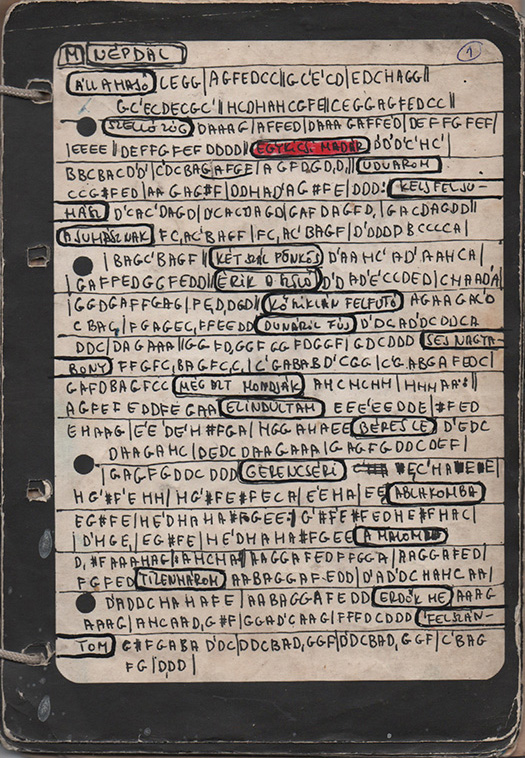 M NÉPDAL 1
ÁLLAHAJÓ CEGG|AGFEDCC||GC'E'CD|EDCHAGG||
GC'ECDECGC'||HCDHAHCGFE||CEGGAGFEDCC||
SZELLŐ ZÚG DAAAG|AFFED|DAAAGAFFED|DEFFGFEF|
|EEEE||DEFFGFEFDDDD|| EGYKICSI MADÁR D'D'C'HC'|
BBCBACD'D'|C'DCBAGAFGF|AGFDGD,D,|| UDVAROM
CCG#FED|AAGAG#F|DDHAD'AG#FE|DDD: KELJ FELJU-
HÁSZ D'CAC'DAGD|D'CACDAGD|GAFDAGFD,|GACDAGDD||
A JUHÁSZNAK FC,AC'BAGF|FC,AC'BAGF|D'DDDDBCCCCA|
|BAGC'BAGF|| KÉT SZÁL PÜNKÖS D'AAHC'AD'AAHCA|
|GAFFEDGGFEDD|| ÉRIK A SZŐLŐ D'D'AD'E'CCDED|CHAADA|
|GGDGAFFGAG|FE,D,DGD| KŐSZIKLÁN FELFUTÓ AGAAGAC'D
CBAG,|FGAGEC,FFEEDD DUNÁRÓL FÚJ D'DCAD'DCDDCA
DDC|DAGAAA||GGFD,GGFGGFDGGF|GDCDDD SEJ NAGYA-
BONY FFGFC,BAGFCC,|C'GABABD'CGG|C'G,ABGAFEDC|
GAFDBAGFCC MÉG AZT MONDJÁK AHCHCHH|HHHAA#||
AGFEFEDDFEGAA ELINDULTAM EEE'E'EDDE|#FED
EHAAG|E'E'DE'H#FGA|HGGAHAEE BÉRES LE D'EDC
DAAGAHC|DEDCDAAGAAA|GAGFGDDCDEF|
|GAGFGDDCDDD GERENCSÉRI #EC'HA#E#E|
HG'#F'EHH|HG'#FE#FECA|E'E'HA|EE ABLAKOMBA
EG#FE|HE'DHAHA#FGEE:|G'#FE#FEDHE#FHAC|
|D'HGE,|EG#FE|HE'DHAHA#FGEE A MALOMBA
D,#FAAAHAG|AHCHA|AAGGAFEDFFGGA|AAGGAFED|
FGFED TIZENHÁROM AABAGGAFEDD|D'AD'DCHAHCAA|
D'ADDCHAHAFE|AABAGGAFEDD ERDŐK HE AAAG
AAAG|AHCAAD,G#F|GGAD'CAAG|FFFDCDDD FELSZÁN-
TOM G#FGABAD'DC|DDCBAD,GGF|D'DCBAD,GGF|C'BAG
FG|DDD|